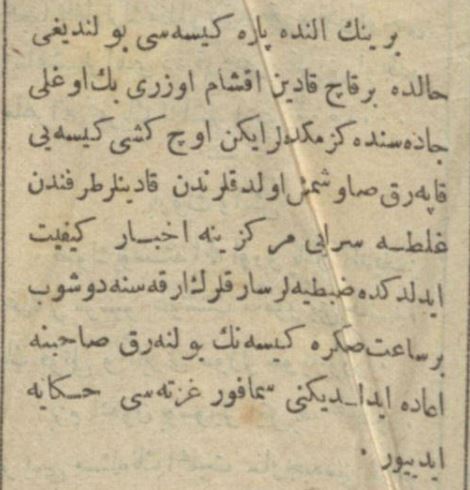 برینك النده پاره كیسه‌سی بو لندیغی
حالده برقاچ قادین اقشام اوزری بك‌اوغلی
جاده‌سنده كزمكده‌لر ایكن اوچ كشی كیسه‌یی
قاپه‌رق صاوشمش اولدقلرندن قادینلر طرفندن
غلطــه سرایی مركزینه اخبــار كیفیت
ایدلدكده ضبطیه‌لر سارقلرك ارقه‌سنه دوشوب
برساعت صكره كیسه‌نك بولنه‌رق صاحبنه
اعاده ایدلــدیكنی سمافور غزته‌سی حــكایه
ایدییور ٠